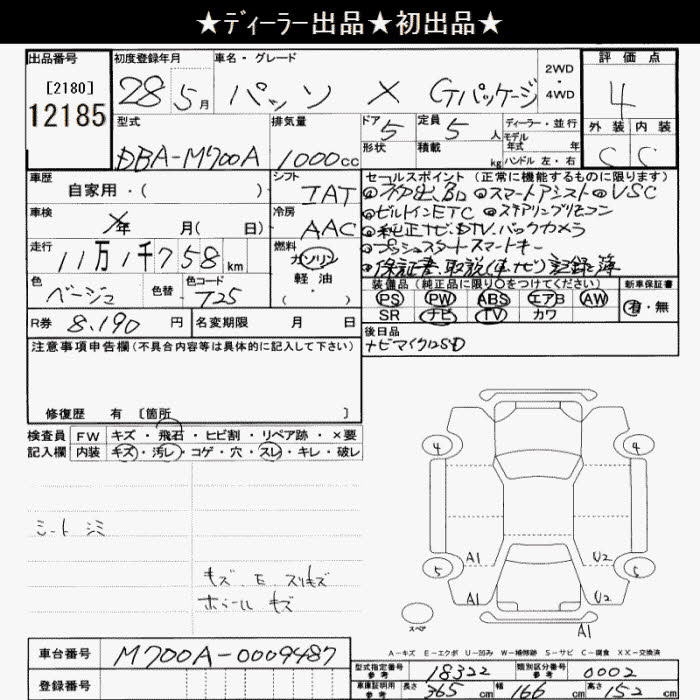 ★ディーラー出品★初出品★
出品番号
[2180]
12185
初度登録年月
28年 5月
車名・グレード
パッソ X Gパッケージ
2WD
・
4WD
評価点
4
外装 内装
C C
型式
DBA-M700A
排気量
1000cc
ドア
5
形状
定員
5人
積載
kg
ディーラー・並行
モデル
年式 年
ハンドル 左・右
車歴
自家用・( )
シフト
IAT
車検
年 月( 日)
冷房
AAC
走行
11万1千758km
燃料
ガソリン
軽油
( )
色
ベージュ
色替
色コード
T25
R券 8,190円
名変期限 月 日
セールスポイント(正常に機能するものに限ります)
◎初出品 ◎スマートアシスト ◎VSC
◎ビルトインETC ◎ステアリングリモコン
◎純正ナビ.DTV.バックカメラ
◎プッシュスタートスマートキー
◎保証書.取説(車.ナビ)記録簿
装備品(純正品に限り○をつけてください)
PS PW ABS エアB AW
SR ナビ TV カワ
新車保証書
有・無
後日品
ナビマイクロSD
注意事項申告欄(不具合内容等は具体的に記入して下さい)
修復歴 有〔箇所 〕
検査員 FW キズ・飛石・ヒビ割・リペア跡・×要
記入欄 内装 キズ・汚レ・コゲ・穴・スレ・キレ・破レ
シート シミ
キズ.E.スリキズ
ホイール キズ
4 4
5 5
A1 U2
A1 U2
スペア
A-キズ E-エクボ U-凹み W-補修跡 S-サビ C-腐食 XX-交換済
車台番号 M700A-0009487
登録番号
型式指定番号
参考
18322
類別区分番号
参考
0002
車庫証明用
参考
長さ 365cm 幅 166cm 高さ 152cm